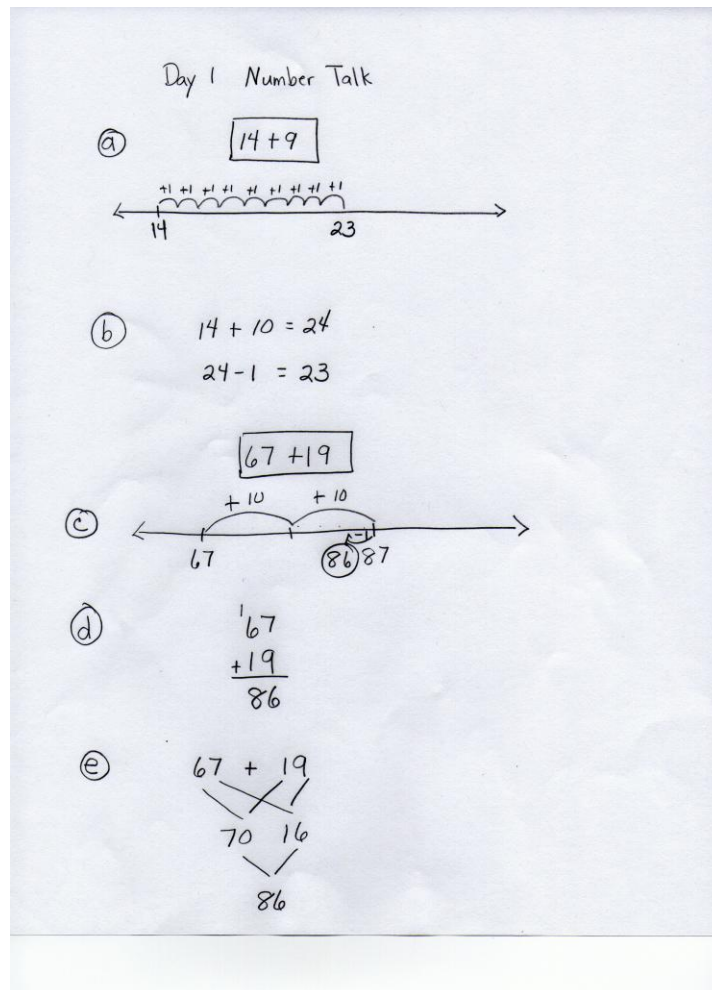 Day 1 Number Talk
a 14 + 9
+1 +1 +1 +1 +1 +1 +1 +1 +1
14 23
b 14 + 10 = 24
24 - 1 = 23
67 + 19
+ 10 + 10
c -1
67 86 87
d 1
67
+ 19
86
e 67 + 19
70 16
86